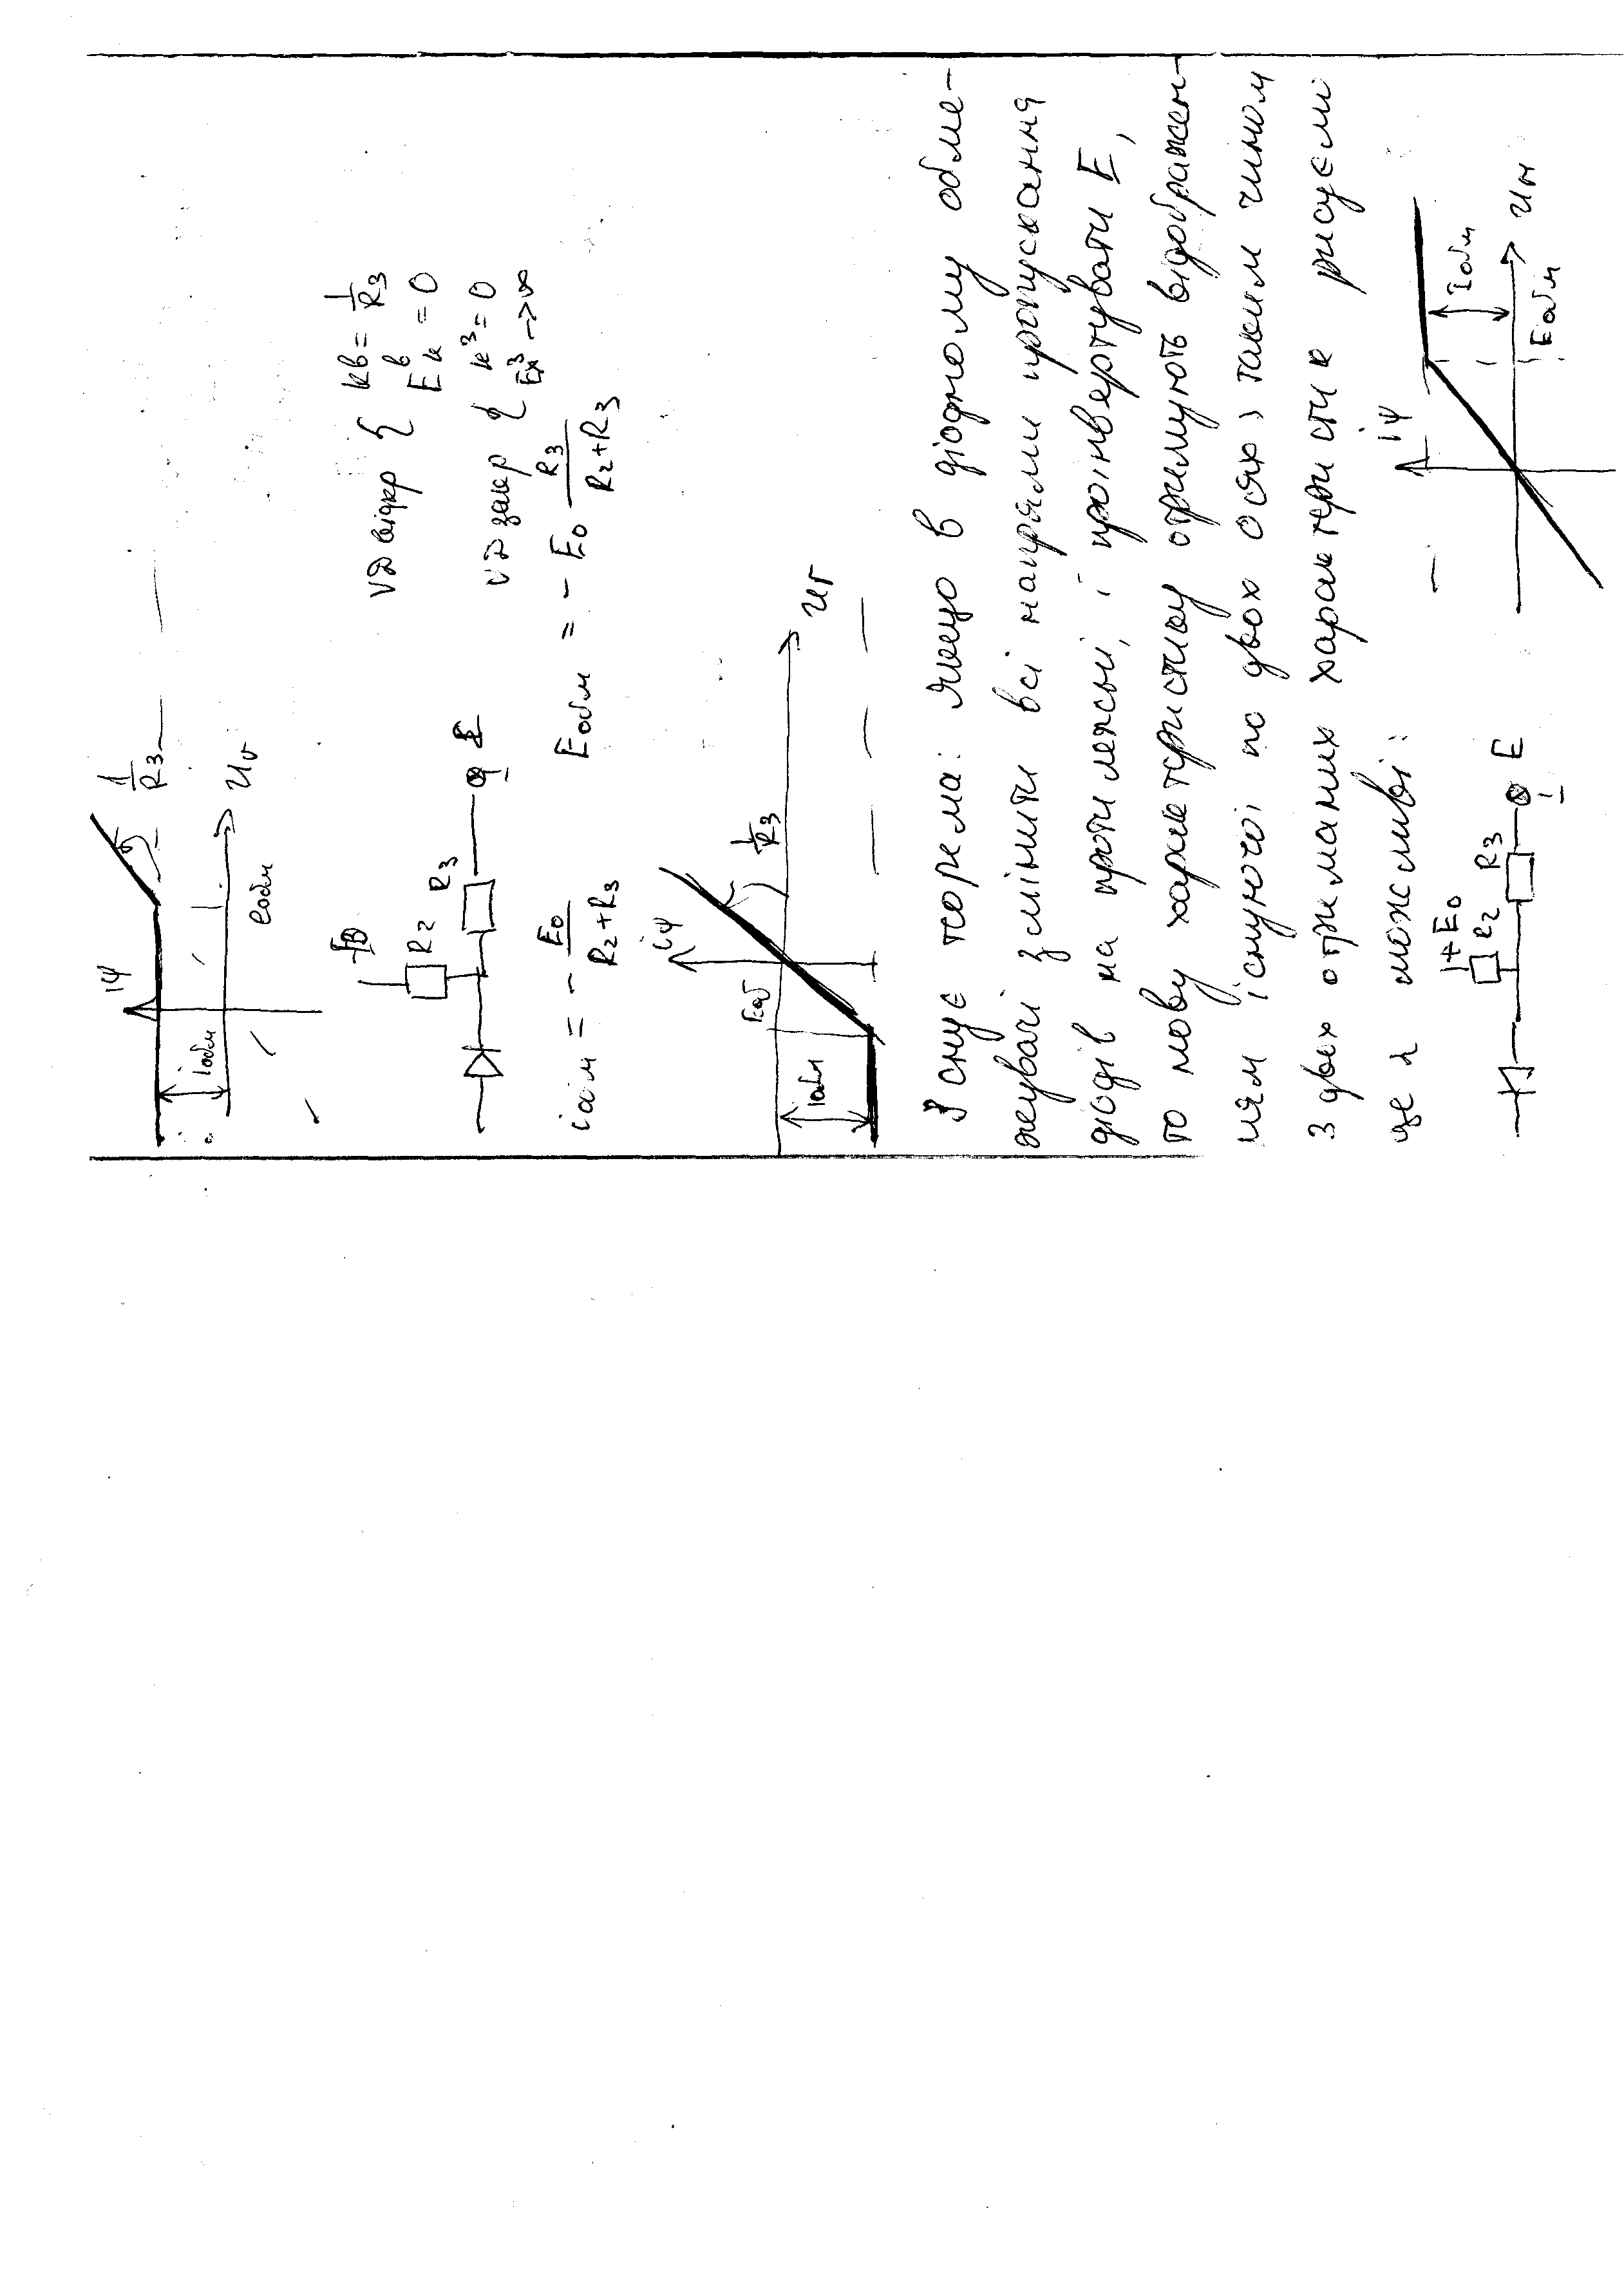 iφ
1/R3
iобм
eобм
Uг
VD відкр { kв = 1/R3
Eкв = 0
R2
R3
VD закр { к³ = 0
Eк³ → ∞
iобм = - E0/(R2+R3)
Eобм = - E0 R3/(R2+R3)
iφ
1/R3
Eоб
iобм
Uг
Існує теорема: якщо в діодному обме-
жувачі змінити всі напрями пропускання
діодів на протилежні, і проінвертувати E,
то нову характеристику отримують відображен-
ням існуючої по двох осях) таким чином
з двох отриманих характеристик рисуєм
це можливі:
+E0
R2
R3
E
iφ
iобм
Eобм
Uн